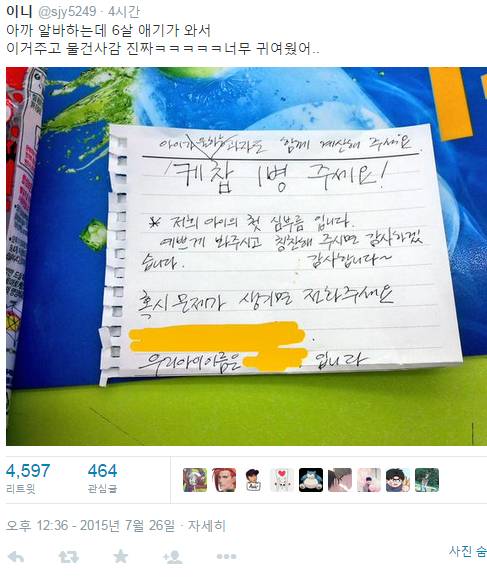 이니 @sjy5249 · 4시간
아까 알바하는데 6살 애기가 와서
이거주고 물건사감 진짜ㅋㅋㅋㅋㅋ너무 귀여웠어..
아이가 원하는 과자도 함께 계산해 주세요.
케찹 1병 주세요!
* 저희 아이의 첫 심부름 입니다.
예쁘게 봐주시고 칭찬해 주시면 감사하겠
습니다. 감사합니다~
혹시 문제가 생기면 전화주세요
우리아이이름은 입니다
4,597 464
리트윗 관심글
오후 12:36 - 2015년 7월 26일 · 자세히
사진 숨